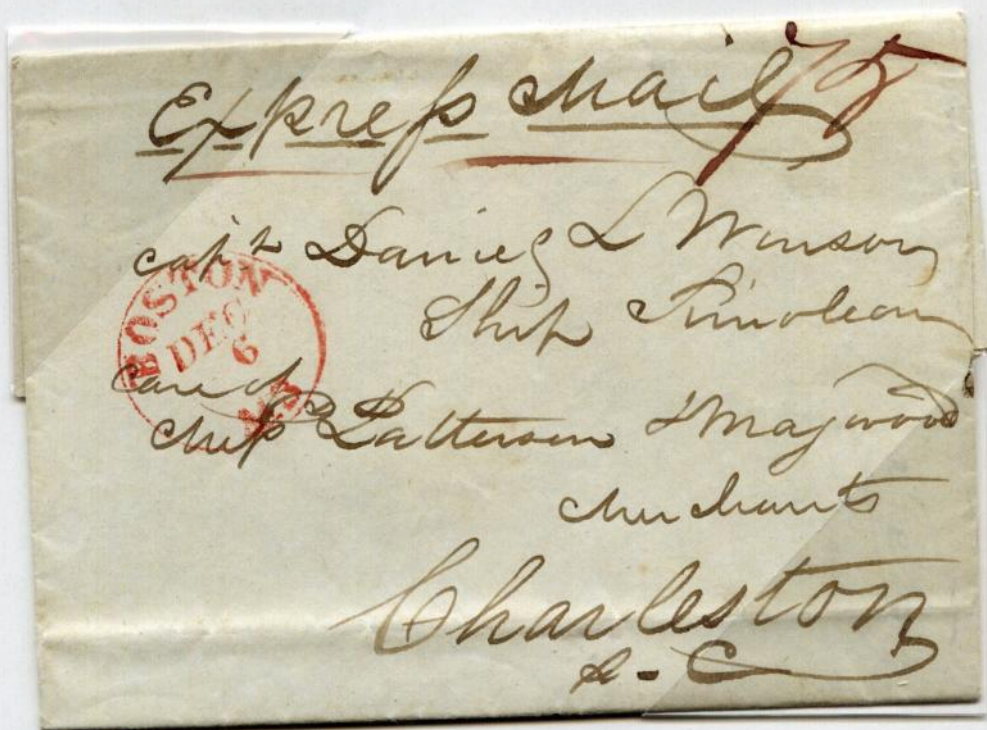 Express Mail 75
Capt Daniel L Winsor
Ship Timoleon
BOSTON
DEC
6
Care of
Mess Patterson & Magwood
Merchants
Charleston
S-C